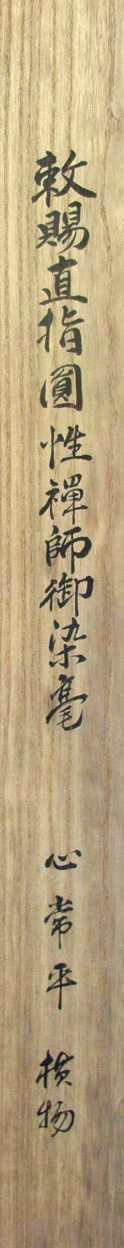 敕賜直指圓性禪師御染毫 心常平 横物